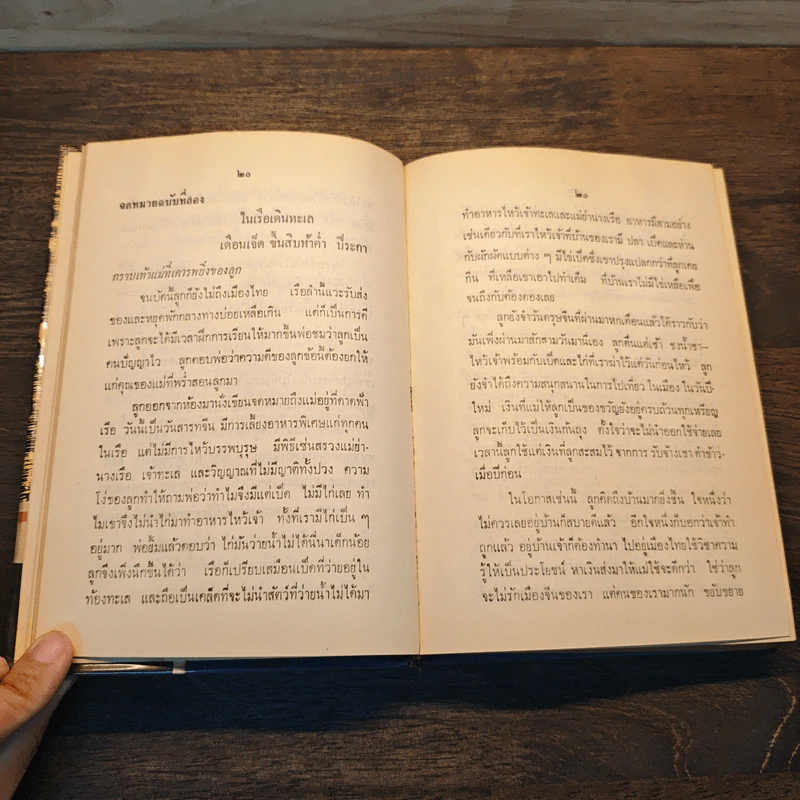 ๒๐
จดหมายฉบับที่สอง
ในเรือเดินทะเล
เดือนเจ็ด ขึ้นสิบห้าค่ำ ปีระกา
กราบเท้าแม่ที่เคารพยิ่งของลูก
จนบัดนี้ลูกก็ยังไม่ถึงเมืองไทย เรือลำนี้แวะรับส่ง
ของและหยุดพักกลางทางบ่อยเหลือเกิน แต่ก็เป็นการดี
เพราะลูกจะได้มีเวลาฝึกการเรียนให้มากขึ้นพ่อชมว่าลูกเป็น
คนปัญญาไว ลูกตอบพ่อว่าความดีของลูกข้อนี้ต้องยกให้
แก่คุณของแม่ที่พร่ำสอนลูกมา
ลูกออกจากห้องมานั่งเขียนจดหมายถึงแม่อยู่ที่ดาดฟ้า
เรือ วันนี้เป็นวันสารทจีน มีการเลี้ยงอาหารพิเศษแก่ทุกคน
ในเรือ แต่ไม่มีการไหว้บรรพบุรุษ มีพิธีเซ่นสรวงแม่ย่า-
นางเรือ เจ้าทะเล และวิญญาณที่ไม่มีญาติทั้งปวง ความ
โง่ของลูกทำให้ถามพ่อว่าทำไมจึงมีแต่เป็ด ไม่มีไก่เลย ทำ
ไมเขาจึงไม่นำไก่มาทำอาหารไหว้เจ้า ทั้งที่เรามีไก่เป็น ๆ
อยู่มาก พ่อยิ้มแล้วตอบว่า ไก่มันว่ายน้ำไม่ได้นี่นาเด็กน้อย
ลูกจึงเพิ่งนึกขึ้นได้ว่า เรือก็เปรียบเสมือนเป็ดที่ว่ายอยู่ใน
ท้องทะเล และถือเป็นเคล็ดที่จะไม่นำสัตว์ที่ว่ายน้ำไม่ได้มา
๒๑
ทำอาหารไหว้เจ้าทะเลและแม่ย่านางเรือ อาหารมีสามอย่าง
เช่นเดียวกับที่เราไหว้เจ้าที่บ้านของเรามี ปลา เป็ดและห่าน
กับผักผัดแบบต่าง ๆ มีไข่เป็ดซึ่งเขาปรุงแปลกกว่าที่ลูกเคย
กิน ที่เหลือเขาเอาไปทำเค็ม ที่บ้านเราไม่มีไข่เหลือเพื่อ
จนถึงกับต้องดองเลย
ลูกยังจำวันตรุษจีนที่ผ่านมาหกเดือนแล้วได้ราวกับว่า
มันเพิ่งผ่านมาสักสามวันมานี่เอง ลูกตื่นแต่เช้า ชงน้ำชา—
ไหว้เจ้าพร้อมกับเป็ดและไก่ที่เราฆ่าไว้แต่วันก่อนไหว้ ลูก
ยังจำได้ถึงความสนุกสนานในการไปเที่ยว ในเมือง ในวันปี-
ใหม่ เงินที่แม่ให้ลูกเป็นของขวัญยังอยู่ครบถ้วนทุกเหรียญ
ลูกจะเก็บไว้เป็นเงินก้นถุง ตั้งใจว่าจะไม่นำออกใช้จ่ายเลย
เวลานี้ลูกใช้แต่เงินที่ลูกสะสมไว้ จากการ รับจ้างเขา ดำข้าว-
เมื่อปีก่อน
ในโอกาสเช่นนี้ ลูกคิดถึงบ้านมากยิ่งขึ้น ใจหนึ่งว่า
ไม่ควรเลยอยู่บ้านก็สบายดีแล้ว อีกใจหนึ่งก็บอกว่าเจ้าทำ
ถูกแล้ว อยู่บ้านเจ้าก็ต้องทำนา ไปอยู่เมืองไทยใช้วิชาความ
รู้ให้เป็นประโยชน์ หาเงินส่งมาให้แม่ใช้จะดีกว่า ใช่ว่าลูก
จะไม่รักเมืองจีนของเรา แต่คนของเรามากนัก ขยับขยาย